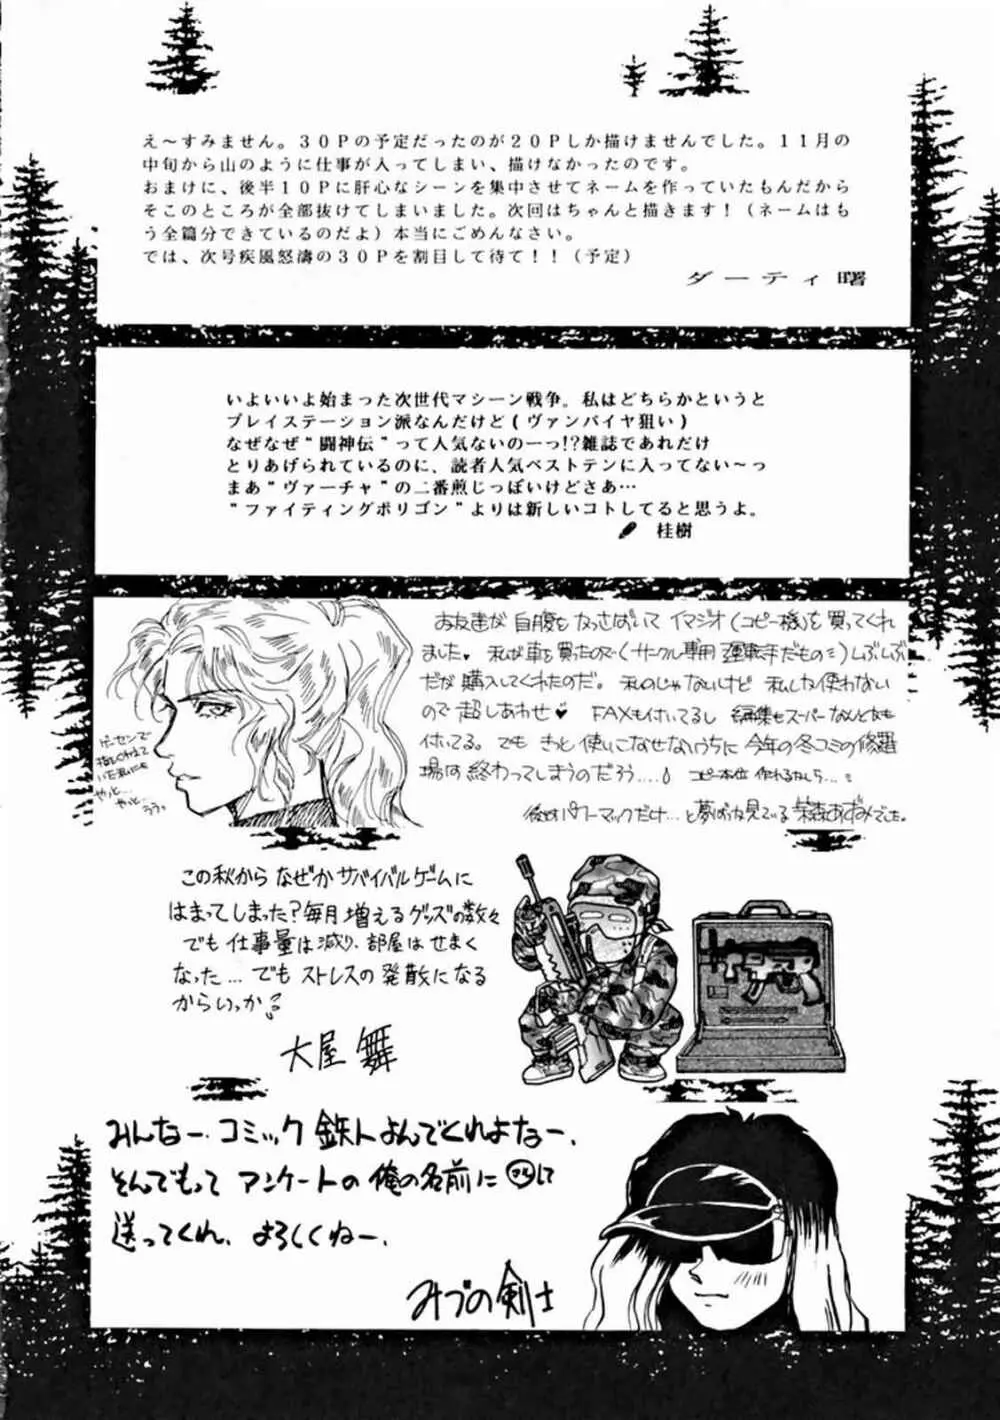 え～すみません。３０Ｐの予定だったのが２０Ｐしか描けませんでした。１１月の
中旬から山のように仕事が入ってしまい、描けなかったのです。
おまけに、後半１０Ｐに肝心なシーンを集中させてネームを作っていたもんだから
そこのところが全部抜けてしまいました。次回はちゃんと描きます！（ネームはも
う全篇分できているのだよ）本当にごめんなさい。
では、次号疾風怒濤の３０Ｐを割目して待て！！（予定）
ダーティ曙
いよいいよ始まった次世代マシーン戦争。私はどちらかというと
プレイステーション派なんだけど（ヴァンパイヤ狙い）
なぜなぜ“闘神伝”って人気ないのーっ!?雑誌であれだけ
とりあげられているのに、読者人気ベストテンに入ってない～っ
まあ“ヴァーチャ”の二番煎じっぽいけどさあ…
“ファイティングポリゴン”よりは新しいコトしてると思うよ。
桂樹
お友達が自腹をかっさばいてイマジオ(コピー機)を買ってくれ
ました。私が車を買ったので(サークル専用運転手だもの)しぶしぶ
だが購入してくれたのだ。私のじゃないけど私しか使わない
ので超しあわせ♥ FAXも付いてるし編集もスーパーなんとかも
付いてる。でもきっと使いこなせないうちに今年の冬コミの修羅
場は終わってしまうのだろう....。コピー本位作れるかしら...
後はパワーマックだけ...と夢ばかり見ている 森あずみでした。
ゲーセンで
やっと...
やっと...
ううっ
この秋からなぜかサバイバルゲームに
はまってしまった?毎月増えるグッズの数々
でも仕事量は減り、部屋はせまく
なった...でもストレスの発散になる
からいっか
大屋舞
みんなー、コミック鉄人よんでくれよなー、
そんでもってアンケートの俺の名前に○して
送ってくれ、よろしくねー、
みづの剣士